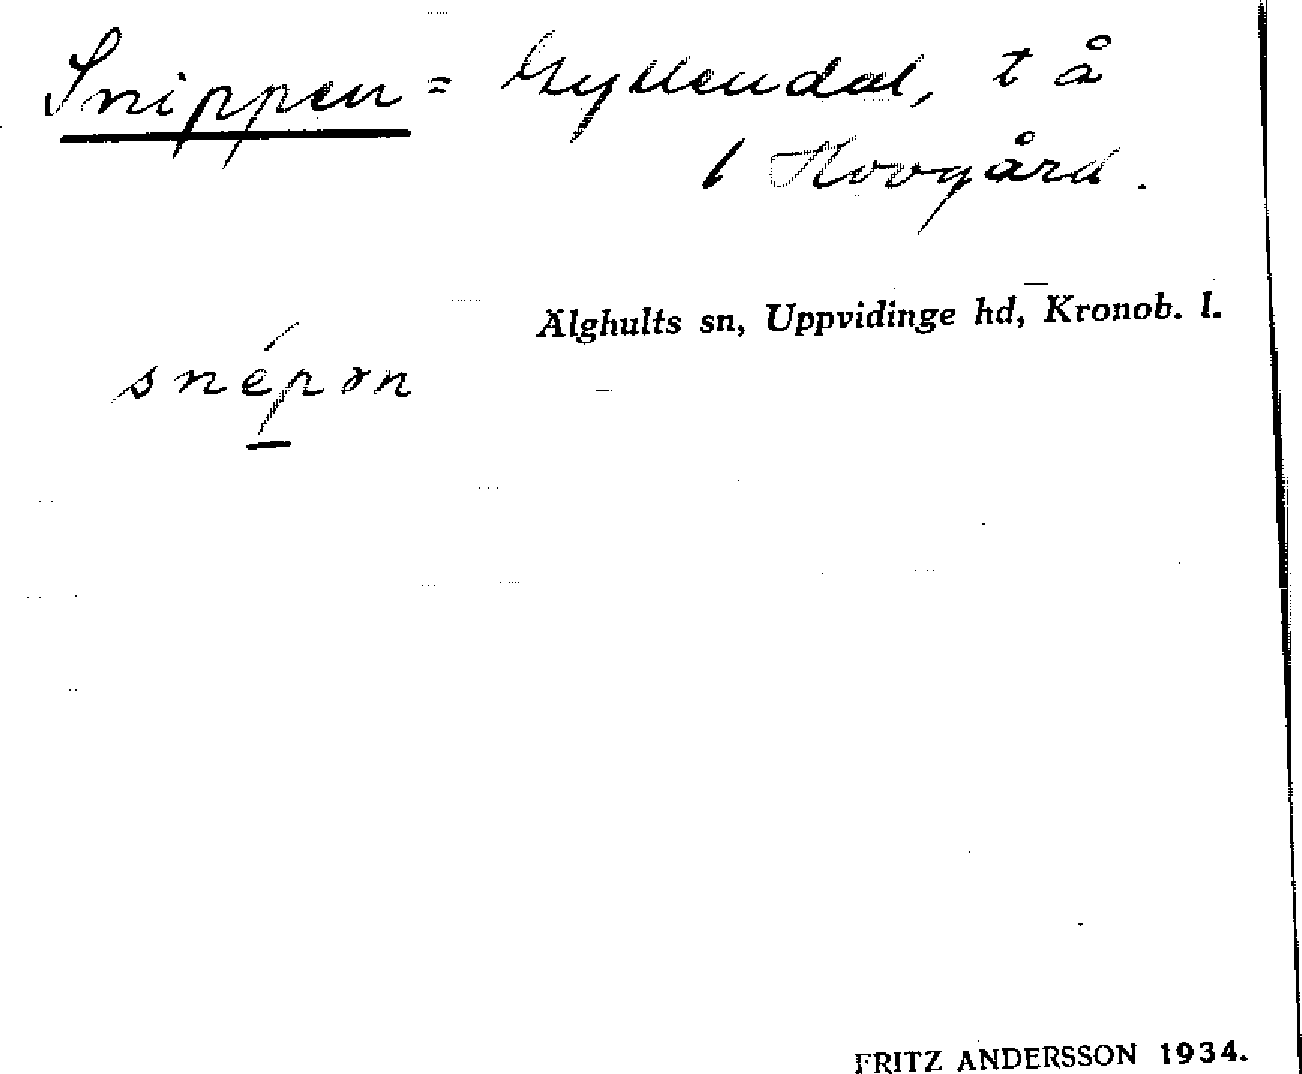 Snippen = Gyllendal, t å
1 Hovgård.
Älghults sn, Uppvidinge hd, Kronob. l.
snépən
FRITZ ANDERSSON 1934.